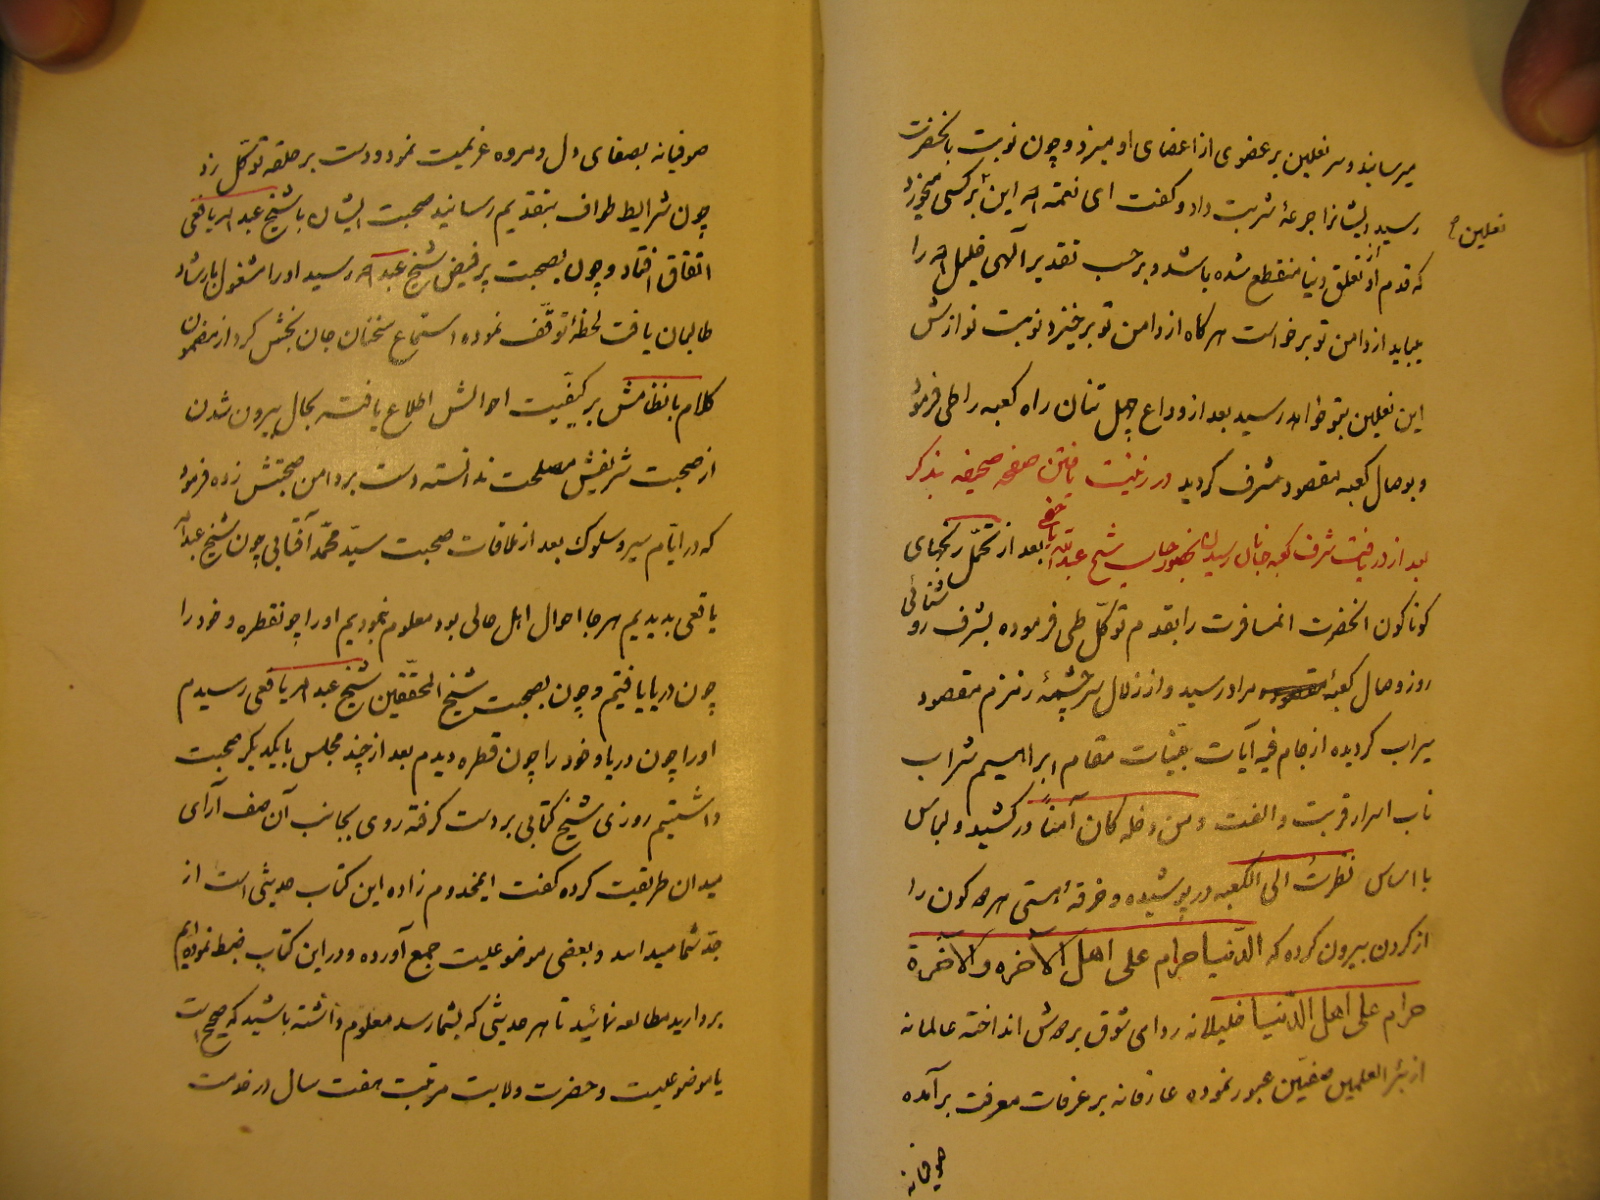 میرساند و سر نعلین بر عضوی از اعضای او میزد و چون نوبت بآنحضرت
رسید ایشانرا جرعهٔ شربت داد و گفت ای نعمة الله این بر کسی میخورد
نعلین
که قدم او از تعلق دنیا منقطع شده باشد و بر حسب تقدیر آلهی خلیل الله را
بیابد از دامن تو برخواست هرگاه از دامن تو برخیزد نوبت نوازش
این نعلین بتو خواهد رسید بعد از وداع چهل تنان راه کعبه را طی فرمود
و بوصال کعبه مقصود مشرف گردید در زینت یافتن صفحه صحیفه بذکر
بعد از دریافت شرف کعبه جانان رسیدن بحضور جناب شیخ عبدالله یافعی بعد از تحمّل رنجهای
گوناگون آنحضرت آنمسافرت را بقدم توکّل طی فرموده بشرف روشنائی
روز وصال کعبهٔ مراد رسید و از زلال سرچشمهٔ زمزم مقصود
سیراب گردیده از جام فیه آیات بیّنات مقام ابراهیم شراب
ناب اسرار قربت و الفت و من دخله کان آمناً درکشید و لباس
با اساس نظرت الی الکعبه درپوشیده و خرقهٔ هستی هر دو کون را
از گردن بیرون کرده که الدّنیا حرام علی اهل الآخره و الآخرة
حرام علی اهل الدّنیا خلیلانه ردای شوق بر دوش انداخته عالمانه
از بئر العلمین صفیّین عبور نموده عارفانه بر عرفات معرفت برآمده
صوفیانه
صوفیانه بصفای دل و مروه عزیمت نمود و دست بر حلقه توکّل زد
چون شرایط طواف بتقدیم رسانید صحبت ایشان با شیخ عبدالله یافعی
اتفاق افتاد و چون بصحبت پر فیض شیخ عبدالله رسید او را مشغول بارشاد
طالبان یافت لحظهٔ توقّف نموده استماع سخنان جان بخش کرد از مضمون
کلام بانظامش بر کیفیّت احوالش اطلاع یافته بحال بیرون شدن
از صحبت شریفش مصلحت ندانسته دست بر دامن صحبتش زده فرمود
که در ایّام سیر و سلوک بعد از ملاقات صحبت سیّد محمّد آقتابی چون شیخ عبدالله
یافعی بدیدیم هرجا احوال اهل حالی بود معلوم نمودیم او را چو نقطره و خود را
چون دریا یافتیم و چون بصحبت شیخ المحققین شیخ عبدالله یافعی رسیدم
او را چون دریا و خود را چون قطره دیدم بعد از چند مجلس با یکدیگر صحبت
داشتیم روزی شیخ کتابی بر دست گرفته روی بجانب آن صف آرای
میدان طریقت کرده گفت ایمخدوم زاده این کتاب حدیثی است از
جدّ شما میداند و بعضی موضوعیت جمع آورده و در این کتاب ضبط نموده ایم
بردارید مطالعه نمائید تا هر حدیثی که بشما رسد معلوم داشته باشید که صحیح است
یا موضوعیت و حضرت ولایت مرتبت هفت سال در خدمت